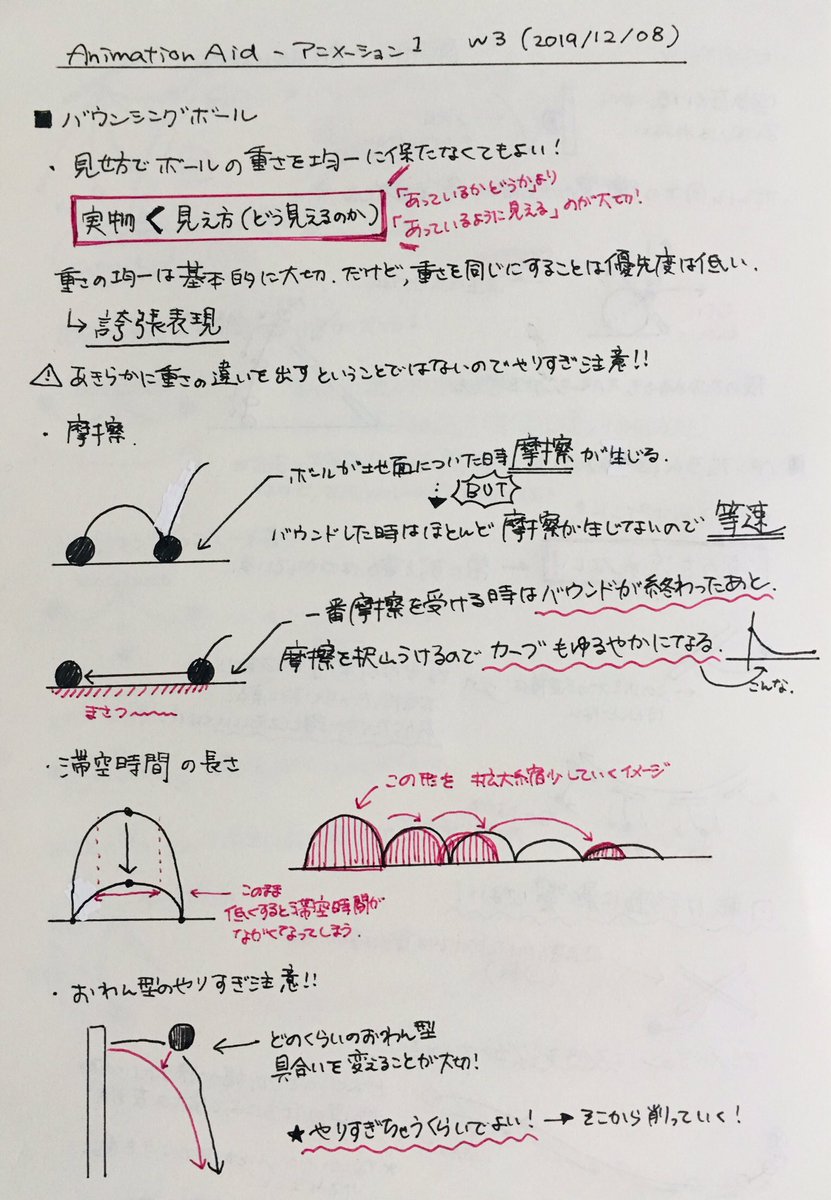 Animation Aid - アニメーション1 W3 (2019/12/08)
■ バウンシングボール
・見せ方でボールの重さを均一に保たなくてもよい!
実物 < 見え方(どう見えるのか)
「あっているかどうか」より
「あっているように見える」のが大切!
重さの均一は基本的に大切。だけど、重さを同じにすることは優先度は低い。
↳ 誇張表現
⚠ あきらかに重さの違いを出すということではないのでやりすぎ注意!!
・摩擦.
ボールが地面についた時摩擦が生じる.
BUT
バウンドした時はほとんど摩擦が生じてないので 等速
一番摩擦を受ける時はバウンドが終わったあと.
摩擦を沢山うけるのでカーブもゆるやかになる.
こんな.
まさつ〜〜
・滞空時間の長さ
この形を拡大縮少していくイメージ
このまま
低くすると滞空時間が
ながくなってしまう.
・おわん型のやりすぎ注意!!
どのくらいのおわん型
具合いを変えることが大切!
★やりすぎちゃうくらいでよい! → そこから削っていく!